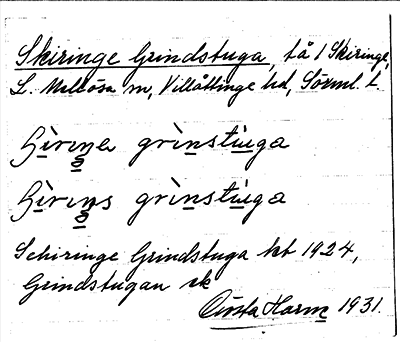 Skiringe Grindstuga, tå 1 Skiringe,
L. Mellösa sn, Villåttinge hd, Sörml. l.
grìnstùga
grìnstùga
Schiringe Grindstuga kt 1924,
Grindstugan sk
Gösta Harm 1931.